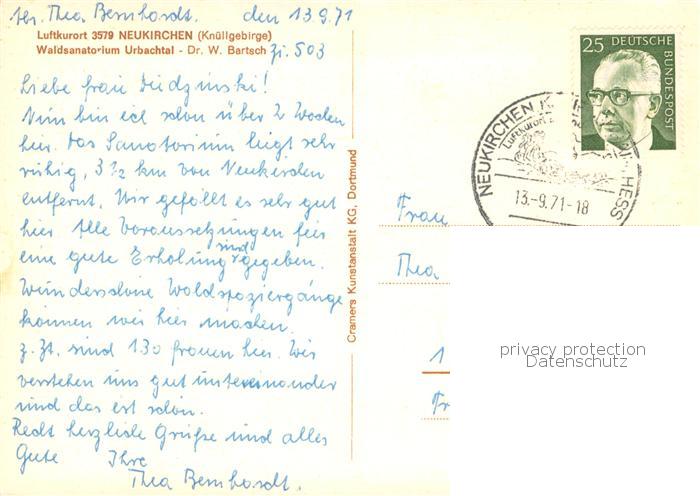 Thea Bernhardt. den 13.9.71
Luftkurort 3579 NEUKIRCHEN (Knüllgebirge)
Waldsanatorium Urbachtal - Dr. W. Bartsch Zi. 503
Liebe Frau Dudzinski!
Nun bin ich schon über 2 Wochen
hier. Das Sanatorium liegt sehr
ruhig, 3½ km von Neukirchen
entfernt. Mir gefällt es sehr gut
hier. Alle Voraussetzungen für
eine gute Erholung sind gegeben.
Wunderschöne Waldspaziergänge
können wir hier machen.
z. Zt. sind 130 Frauen hier. Wir
verstehen uns gut untereinander
und das ist schön.
Recht herzliche Grüße und alles
Gute Ihre
Thea Bernhardt.
Cramers Kunstanstalt KG, Dortmund
25 DEUTSCHE
BUNDESPOST
NEUKIRCHEN HESS
Luftkurort
13.-9.71-18
Frau
Thea
1
Fr
privacy protection
Datenschutz